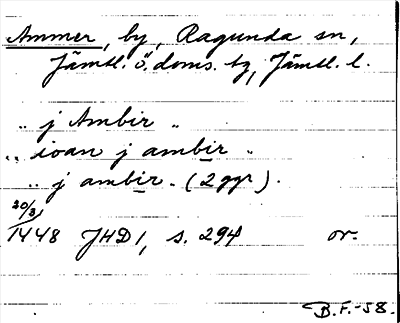 Ammer, by, Ragunda sn,
Jämtl. ö. doms. tg, Jämtl. l.
.. j Ambir ..
.. ioan j ambir ..
.. j ambir .. (2 ggr).
20/3 1448 JHD 1, s. 294 or.
B.F.-58.